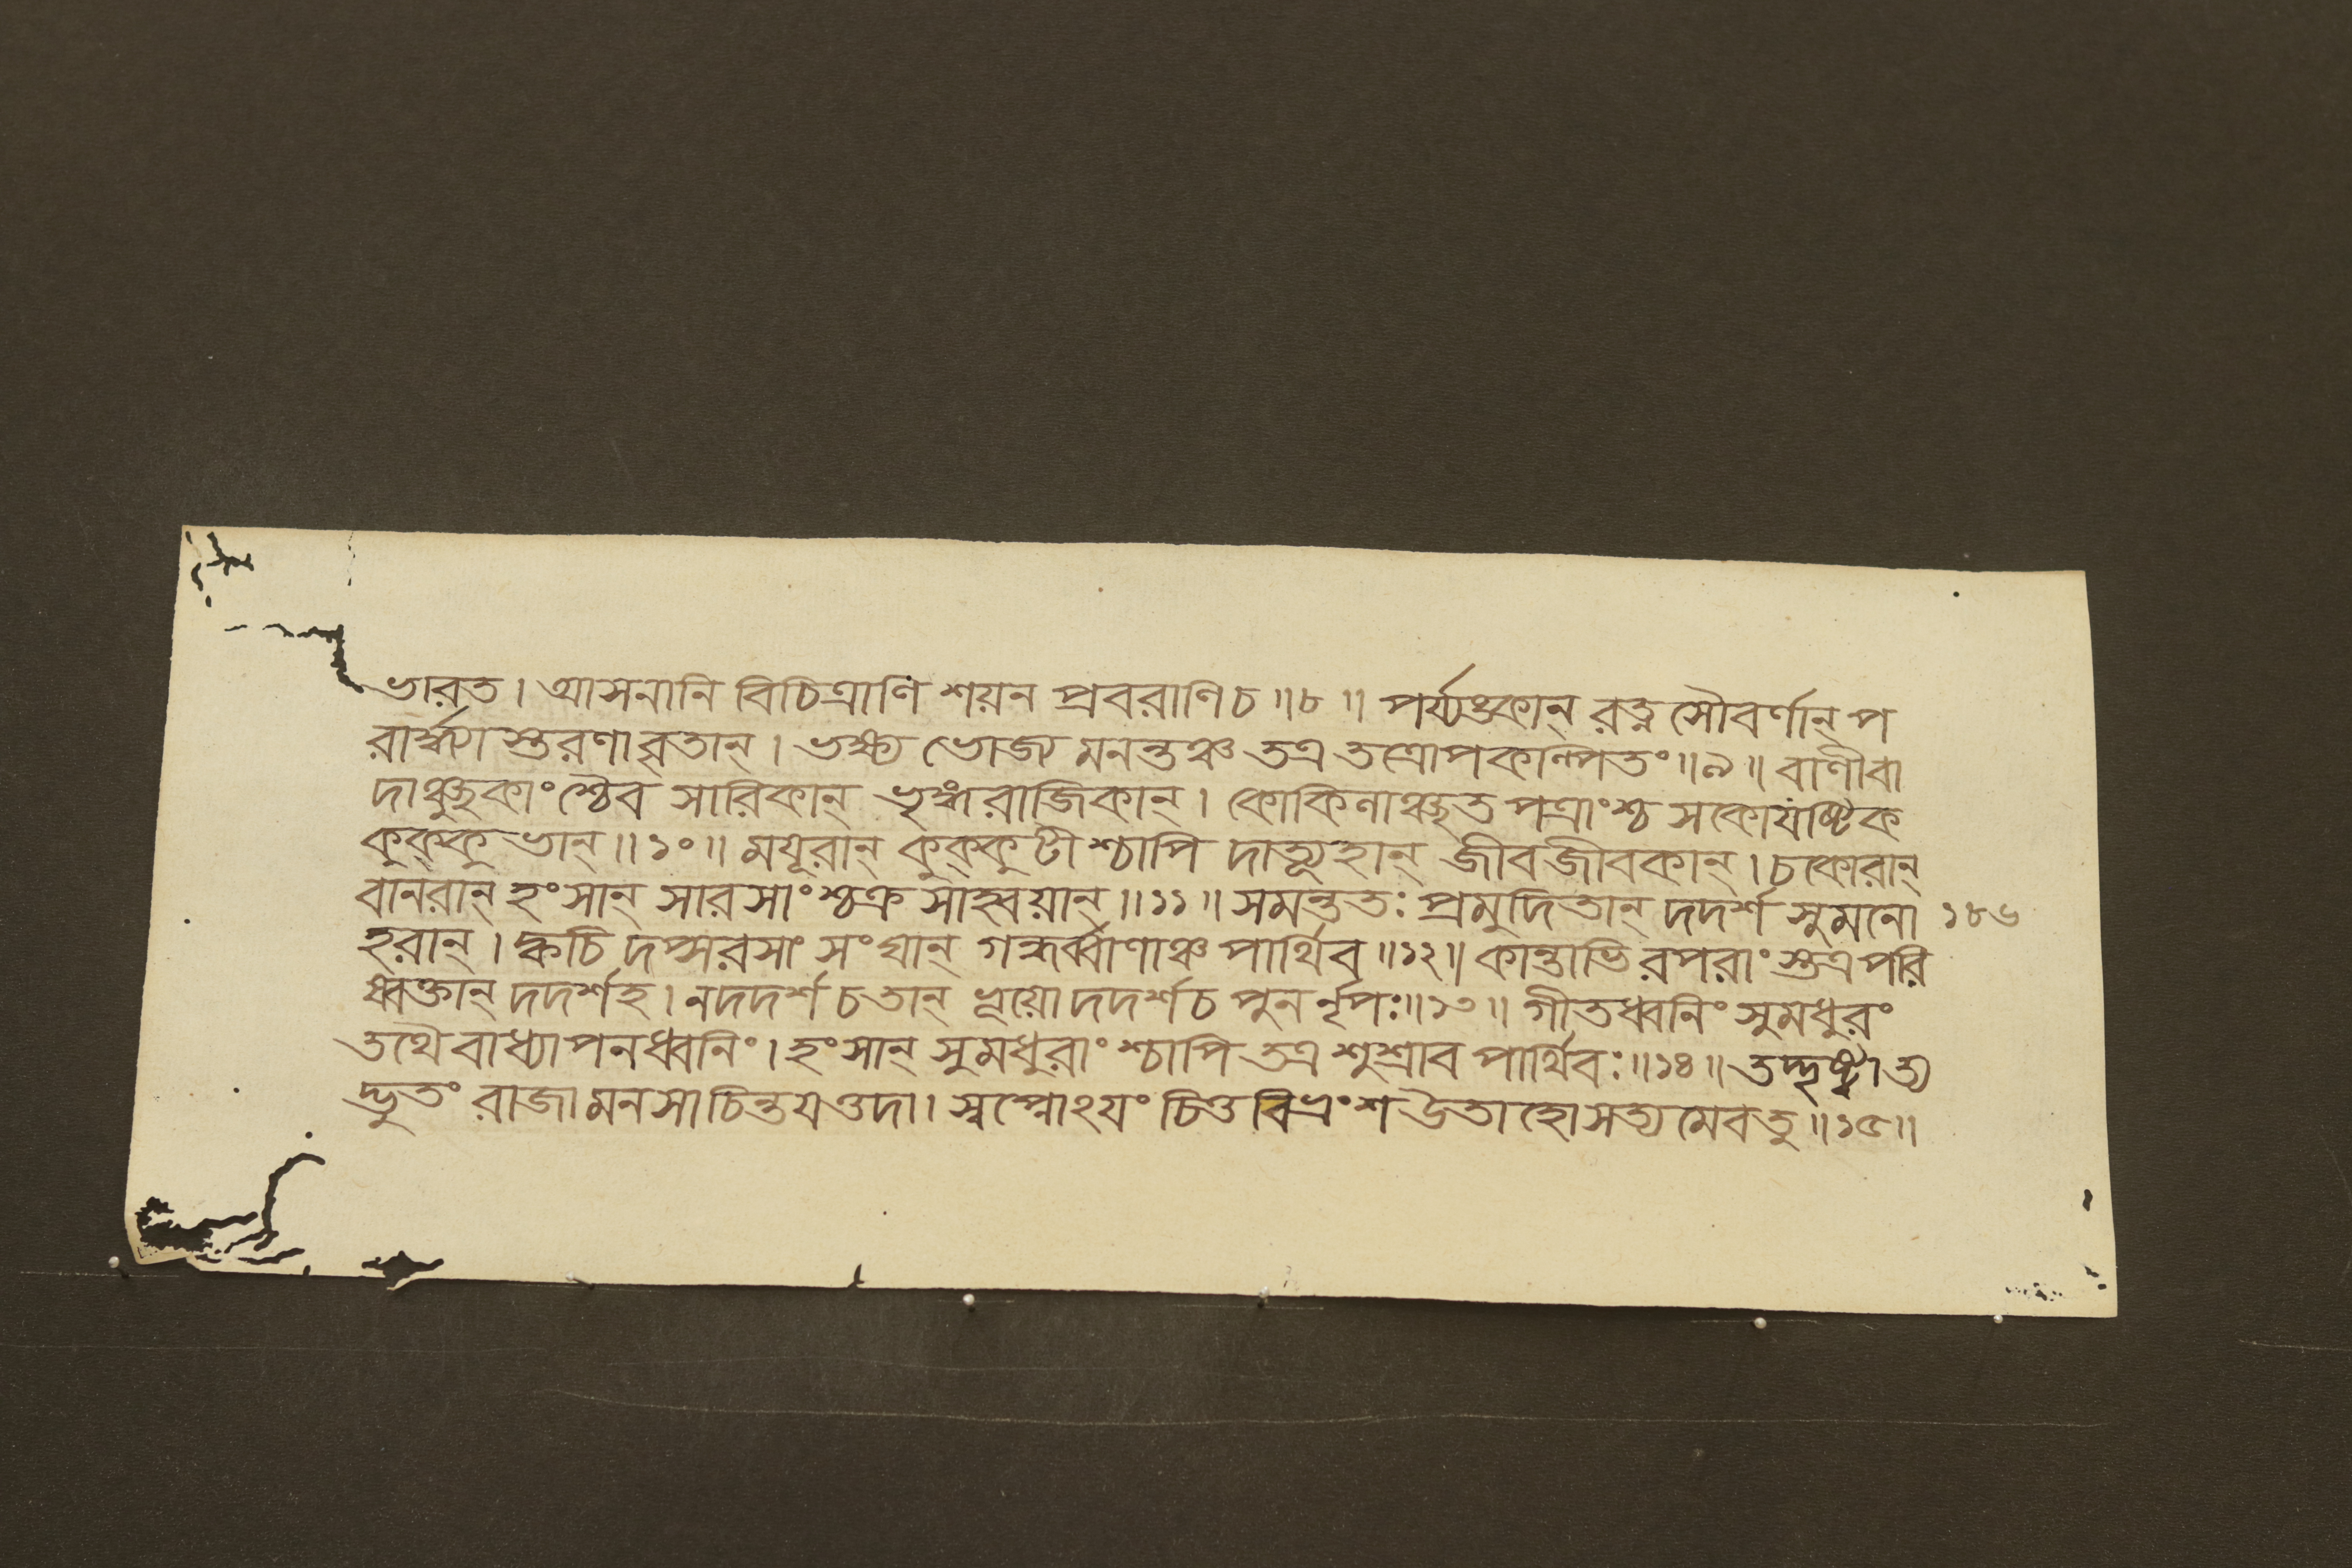 ভারত। আসনানি বিচিত্রাণি শয়ন প্রবরাণিচ॥৮॥ পর্য্যঙ্কান্ রত্ন সৌবর্ণান্ প
রার্দ্ধ্যা স্তরণাবৃতান্। ভক্ষ্য ভোজ্য মনন্তঞ্চ তত্র তত্রোপকল্পিতং॥৯॥ বাণীবা
দাঞ্ছুকাংশ্চৈব সারিকান্ ভৃঙ্গরাজিকান্। কোকিলাঞ্ছত পত্রাংশ্চ সকোযষ্টিক
কুক্কুভান্॥১০॥ ময়ূরান্ কুক্কুটাংশ্চাপি দাত্যূহান্ জীবজীবকান্। চকোরান্
বানরান্ হংসান্ সারসাংশ্চক্র সাহ্বয়ান্॥১১॥ সমন্ততঃ প্রমুদিতান্ দদর্শ সুমনো ১৮৬
হরান্। ক্বচি দপ্সরসাং সংঘান্ গন্ধর্ব্বাণাঞ্চ পার্থিব॥১২॥ কান্তাভিরপরাংস্তত্র পরি
ষ্বক্তান্ দদর্শহ। নদদর্শ চতান্ ভূয়ো দদর্শচ পুনর্নৃপঃ॥১৩॥ গীতধ্বনিং সুমধুরং
তথৈবাধ্যাপনধ্বনিং। হংসান্ সুমধুরাংশ্চাপি তত্র শুশ্রাব পার্থিবঃ॥১৪॥ তদ্দৃষ্ট্বাত্য
দ্ভুতং রাজা মনসাচিন্তয়ত্তদা। স্বপ্নোঽয়ং চিত্ত বিভ্রংশ উতাহো সত্যমেবতু॥১৫॥